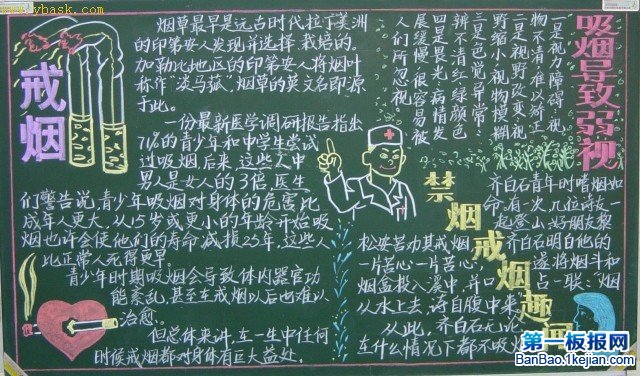 www.ybask.com
戒烟
烟草最早是远古时代拉丁美洲
的印第安人发现并选择栽培的。
加勒比地区的印第安人将烟叶
称作“淡马菰”,烟草的英文名即源
于此。
一份最新医学调研报告指出
71%的青少年和中学生尝试
过吸烟后来,这些人中
男人是女人的3倍,医生
们警告说,青少年吸烟对身体的危害比
成年人更大,从15岁或更小的年龄开始吸
烟也许会使他们的寿命减损25年,这些人
比正常人死得更早。
青少年时期吸烟会导致体内器官功
能紊乱,甚至在戒烟以后也难以
治愈。
但总体来讲,在一生中任何
时候戒烟都对身体有巨大益处,
吸烟导致弱视
一是视力障碍,视
物不清难以矫正
二是视野改变,视
野缩小,视物模糊
三是色觉异常:
辨不清红绿颜色
四是畏光,病情发
展缓慢,很容易被
人们所忽视
禁烟戒烟趣闻
齐白石青年时嗜烟如
命,有一次,几位诗友一
起登山,好朋友黎
松安苦劝其戒烟,齐白石明白他的
一片苦心一片苦心,遂将烟斗和
烟盒投入溪中,并口占一联:“烟
从水上去,诗自腹中来
从此,齐白石无论
在什么情况下都不吸烟
第一板报网
BanBao.1kejian.com